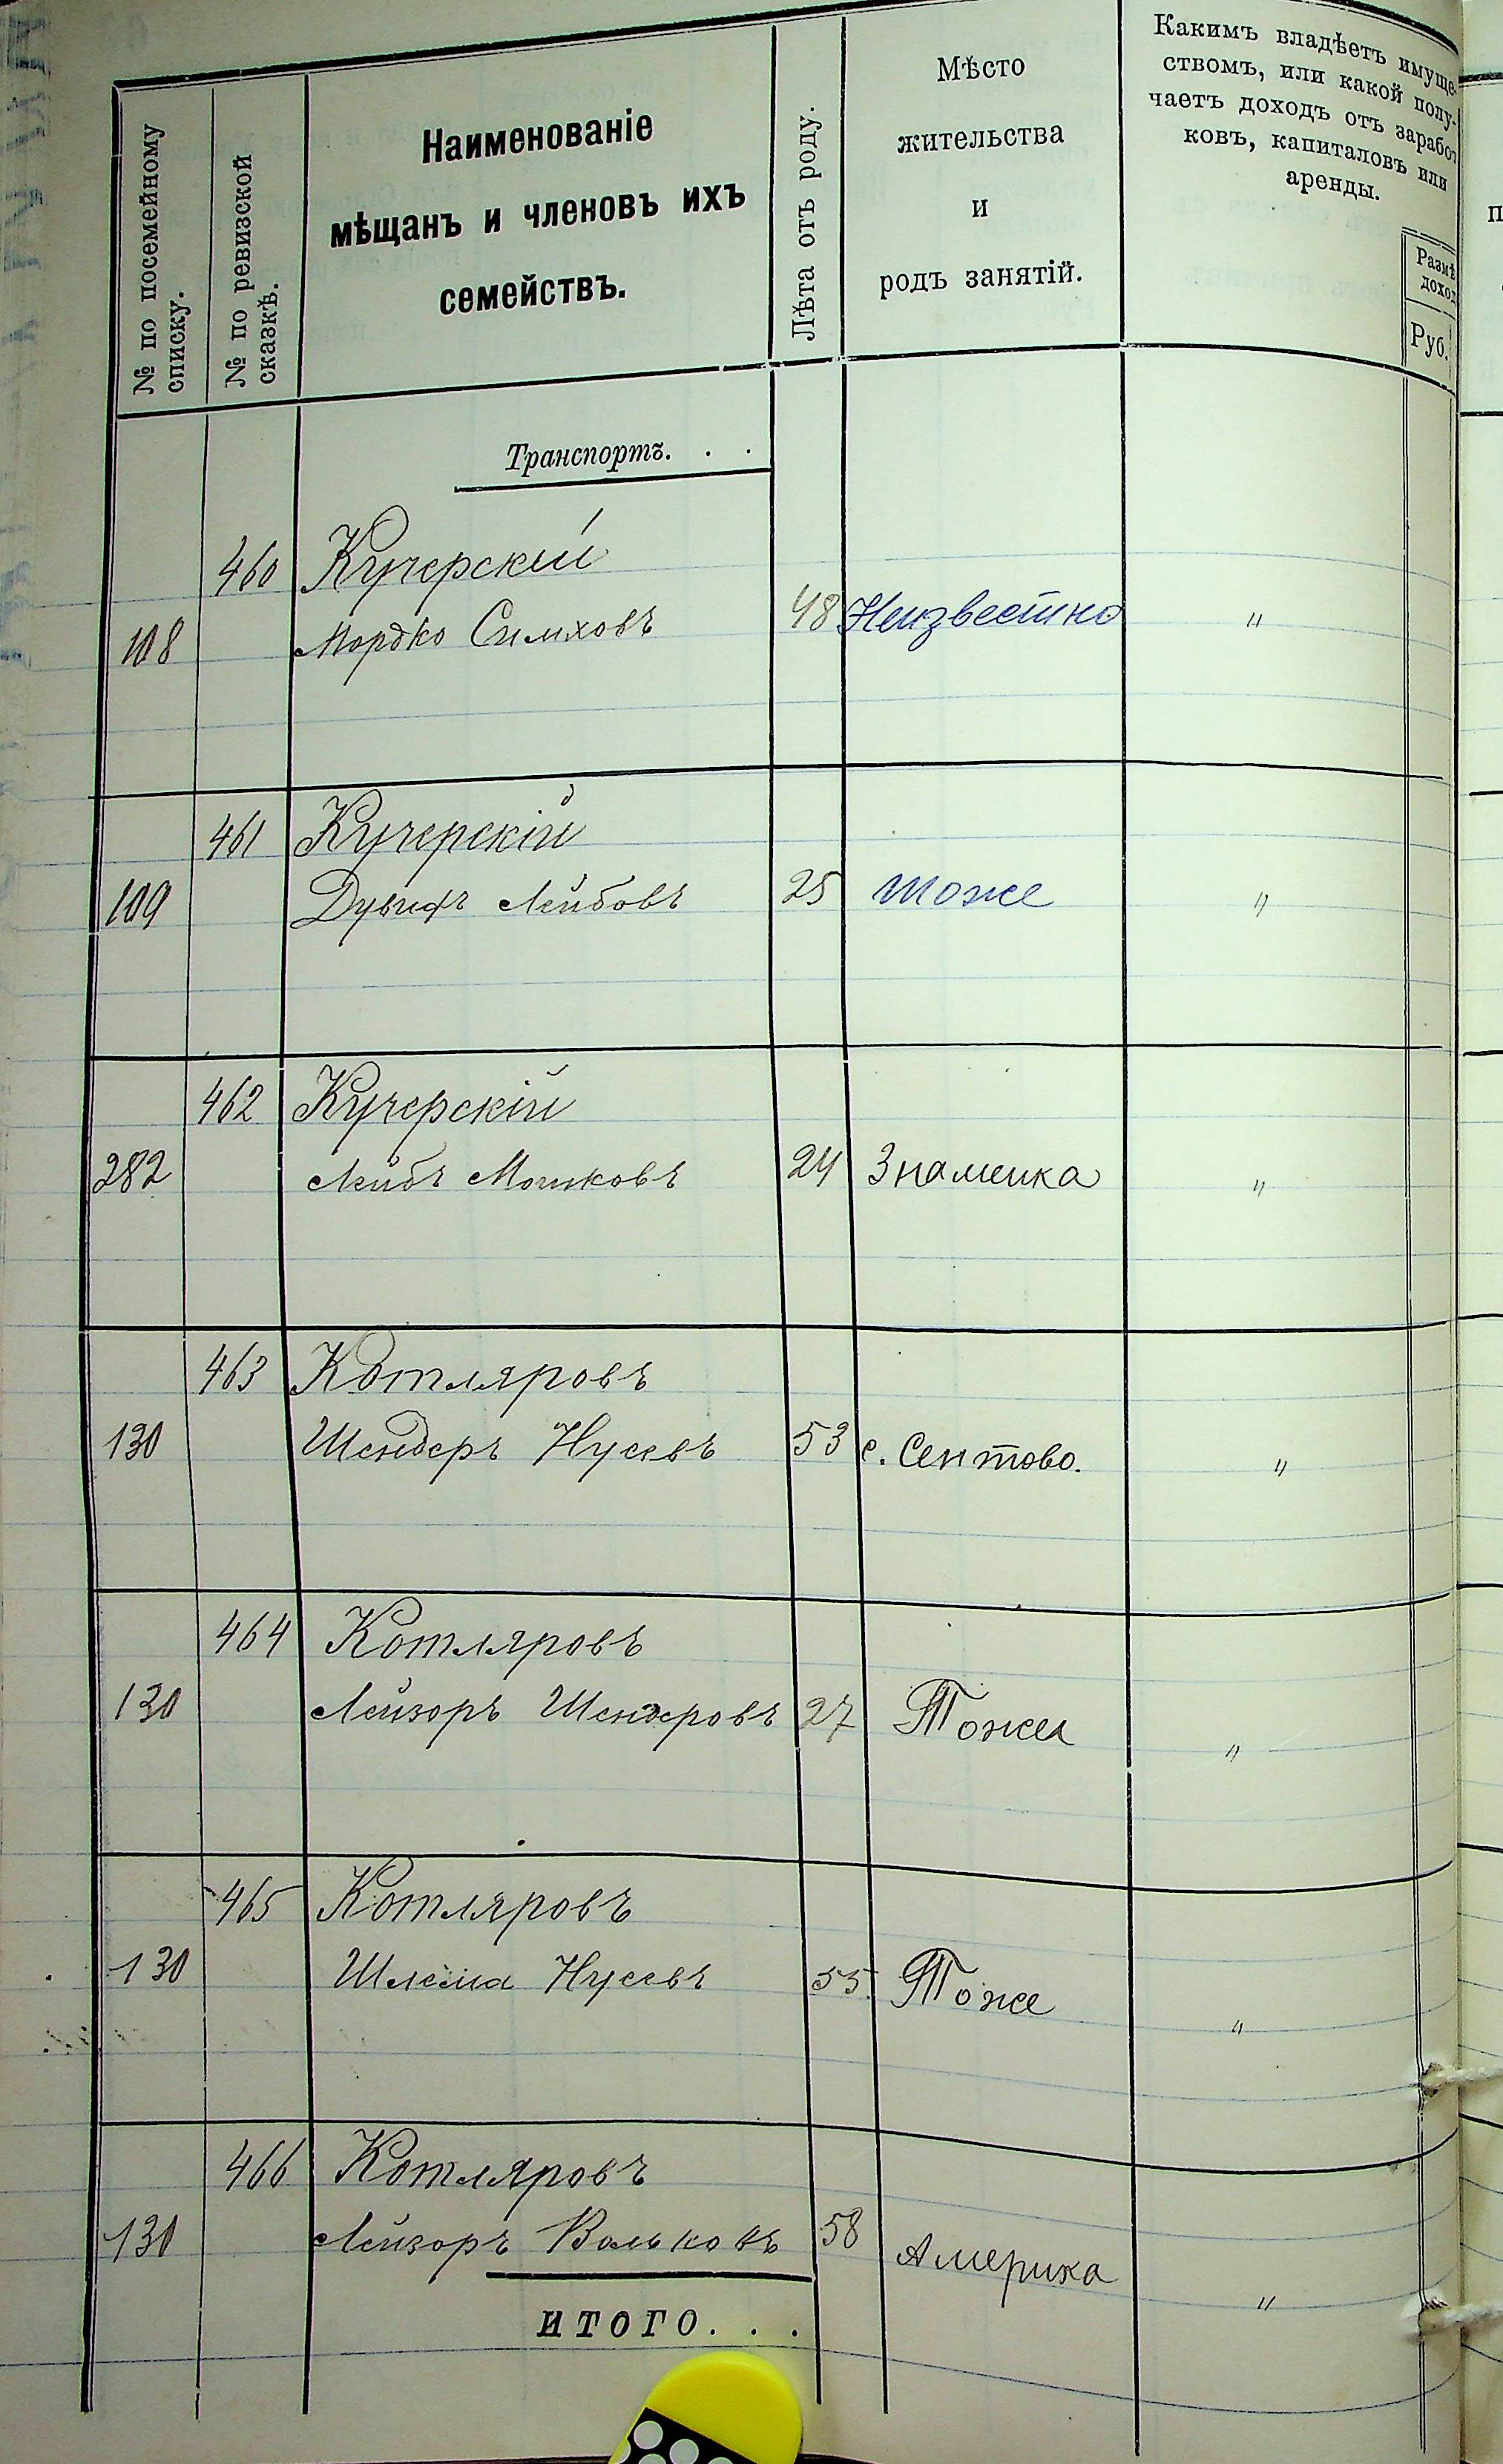 № по посемейному
списку.
№ по ревизской
сказкѣ.
Наименованіе
мѣщанъ и членовъ ихъ
семействъ.
Лѣта отъ роду.
Мѣсто
жительства
и
родъ занятій.
Какимъ владѣетъ имуще-
ствомъ, или какой полу-
чаетъ доходъ отъ заработ
ковъ, капиталовъ или
аренды.
Размѣ
доход
Руб.
Транспортъ. . .
460 Кучерскій
108 Мордко Симховъ 48 Неизвестно "
461 Кучерскій
109 Дувидъ Лейбовъ 25 тоже "
462 Кучерскій
282 Лейбъ Мошковъ 24 Знаменка "
463 Котляровъ
130 Шендеръ Нусевъ 53 с. Сентово. "
464 Котляровъ
130 Лейзоръ Шендеровъ 27 Тоже "
465 Котляровъ
130 Шлема Нусевъ 55 Тоже "
466 Котляровъ
130 Лейзоръ Вольковъ 58 Америка "
итого. . .